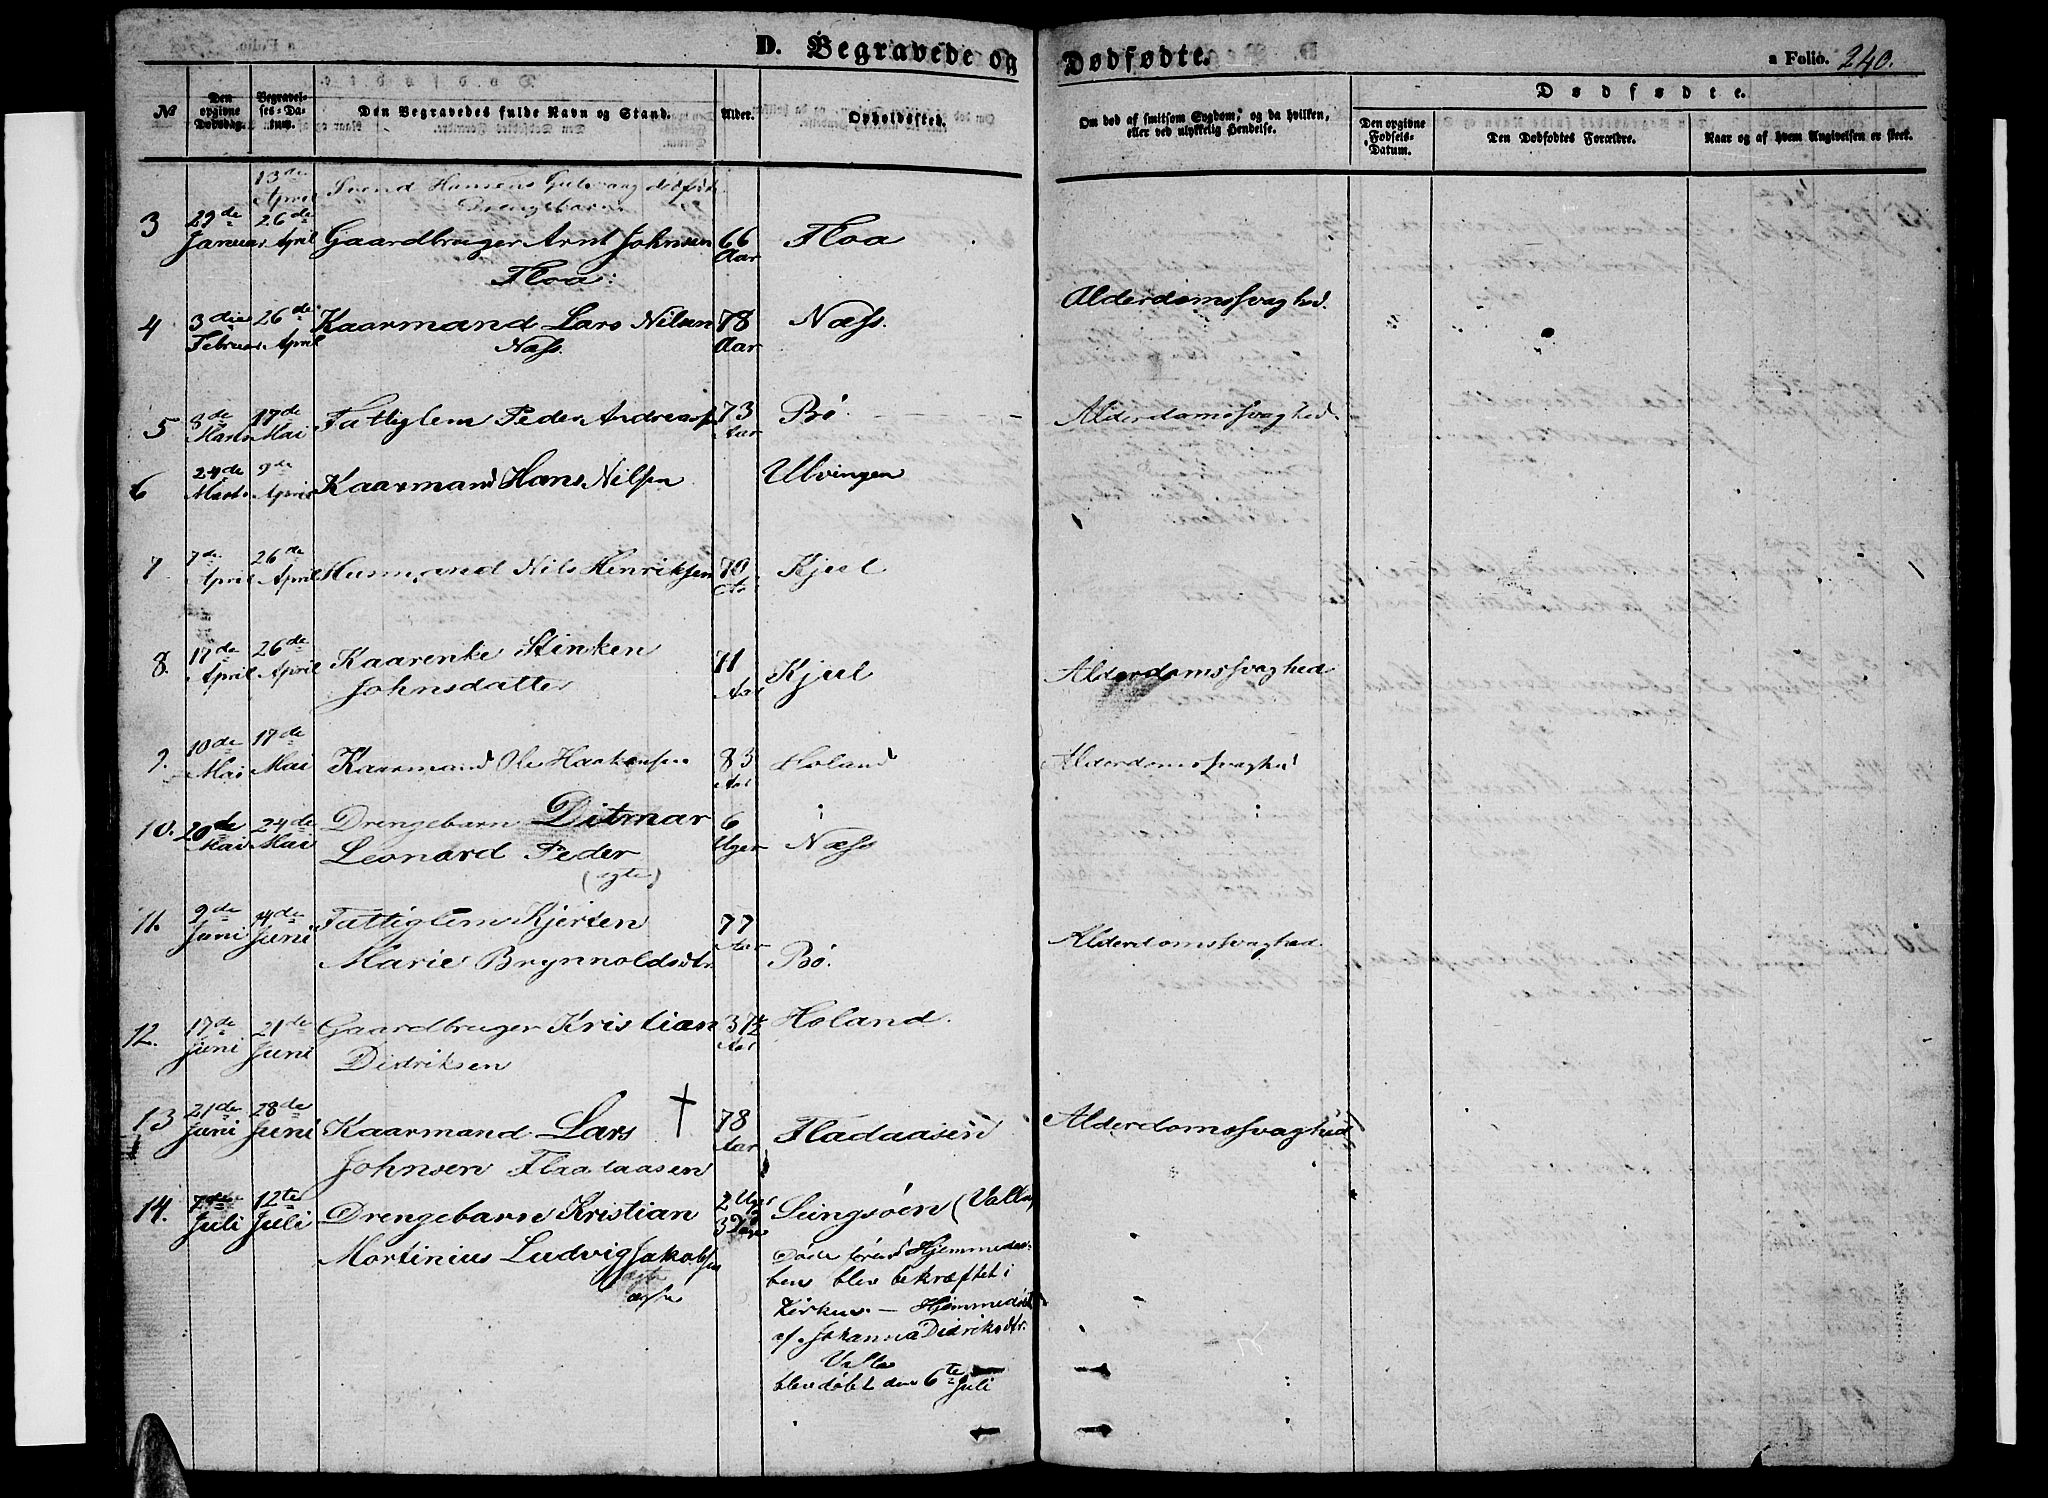 D. Begravede og Dødfødte.
a Folio. 240.
№
Den opgivne Dødsdag.
Begravelses-Datum.
Den Begravedes fulde Navn og Stand.
Alder.
Opholdssted.
Om død af smitsom Sygdom, og da hvilken, eller ved ulykkelig Hendelse.
Dødfødte.
Den opgivne Fødsels-Datum.
Den Dødfødtes Forældre.
Naar og af hvem Angivelsen er skeet.
13de April Svend Hansens dødfødt
Drengebarn
3 29de Januar 26de April Gaardbruger Arnt Johnsen 66 Aar Floa
Floa:
4 3die Februar 26de April Kaarmand Lars Nilsen 78 Aar Næss. Alderdomssvaghed.
Næss.
5 8de Marts 17de Mai Fattiglem Peder Andreas 73 Aar Bø. Alderdomssvaghed.
6 24de Marts 9de April Kaarmand Hans Nilsen Ulvingen
7. 7de April 26de April Husmand Nils Henriksen 70 Aar Kjeel
8. 17de April 26de April Kaarenke Stinken 71 Aar Kjeel Alderdomssvaghed
Johnsdatter
9. 10de Mai 17de Mai Kaarmand Ole Haakensen 83 Aar Holand Alderdomssvaghed
10. 20de Mai 24de Mai Drengebarn Ditmar 6 Uger Næss
Leonard Peder
(ægte)
11. 9de Juni 14de Juni Fattiglem Kjersten 77 Aar Bø. Alderdomssvaghed.
Marie Brynnoldsdtr.
12. 17de Juni 21de Juni Gaardbruger Kristian 37½ Aar Holand.
Didriksen
13 21de Juni 28de Juni Kaarmand Lars † 78 Aar Fladaasen Alderdomssvaghed
Johnsen Fladaasen
14. 7de Juli 12te Juli Drengebarn Kristian 2 Uger 3 Dage Leingsøen (Valla)
Mortinius Ludvig Jakobsen
ægte
Døde førend Hjemmedaa-
bens blev bekræftet i
Kirken. — Hjemmedøbt
af Johanna Didriksdtr.
Valla
blev døbt den 6te Juli